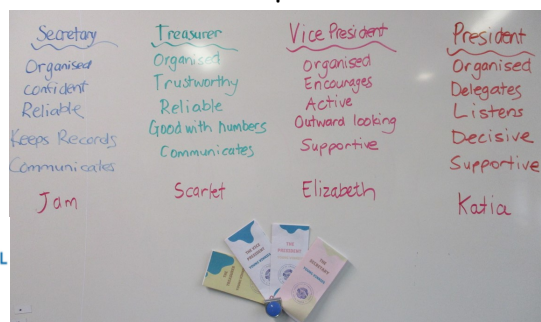 Secretary
Organised
confident
Reliable
Keeps Records
Communicates
Jam
Treasurer
Organised
Trustworthy
Reliable
Good with numbers
Communicates
Scarlet
Vice President
Organised
Encourages
Active
Outward looking
Supportive
Elizabeth
President
Organised
Delegates
Listens
Decisive
Supportive
Katia
THE
TREASURER
THE VICE
PRESIDENT
THE
PRESIDENT
THE
SECRETARY
L